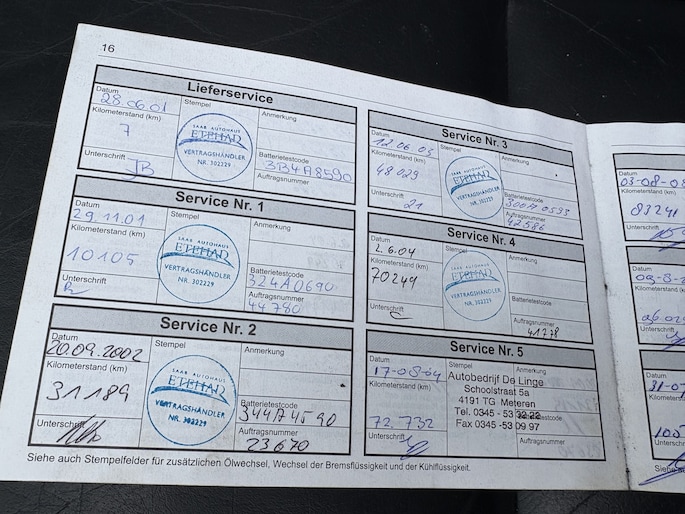 16
Lieferservice
Datum
28.06.01
Stempel
Anmerkung
Kilometerstand (km)
7
SAAB AUTOHAUS
ETEHAD
VERTRAGSHÄNDLER
NR. 302229
Batterietestcode
3B4A8590
Unterschrift
JB
Auftragsnummer
Service Nr. 1
Datum
29.11.01
Stempel
Anmerkung
Kilometerstand (km)
10105
SAAB AUTOHAUS
ETEHAD
VERTRAGSHÄNDLER
NR. 302229
Batterietestcode
324A0690
Unterschrift
Auftragsnummer
44780
Service Nr. 2
Datum
20.09.2002
Stempel
Anmerkung
Kilometerstand (km)
31189
SAAB AUTOHAUS
ETEHAD
VERTRAGSHÄNDLER
NR. 302229
Batterietestcode
344A74590
Unterschrift
Auftragsnummer
23670
Siehe auch Stempelfelder für zusätzlichen Ölwechsel, Wechsel der Bremsflüssigkeit und der Kühlflüssigkeit.
Service Nr. 3
Datum
12.06.03
Stempel
Anmerkung
Kilometerstand (km)
48029
SAAB AUTOHAUS
ETEHAD
VERTRAGSHÄNDLER
NR. 302229
Batterietestcode
Unterschrift
21
Auftragsnummer
42586
Service Nr. 4
Datum
2.6.04
Stempel
Anmerkung
Kilometerstand (km)
70249
SAAB AUTOHAUS
ETEHAD
VERTRAGSHÄNDLER
NR. 302229
Batterietestcode
Unterschrift
Auftragsnummer
41278
Service Nr. 5
Datum
17-08-04
Kilometerstand (km)
72.732
Autobedrijf De Linge
Schoolstraat 5a
4191 TG Meteren
Tel. 0345 - 53 22 22
Fax 0345 - 53 09 97
Unterschrift
Auftragsnummer
Datum
03-08-0
Kilometerstand
83241
Unterschrift
Datum
Kilometerstand
Unterschrift
Datum
31-07
Kilometerstand
Unterschrift
Siehe